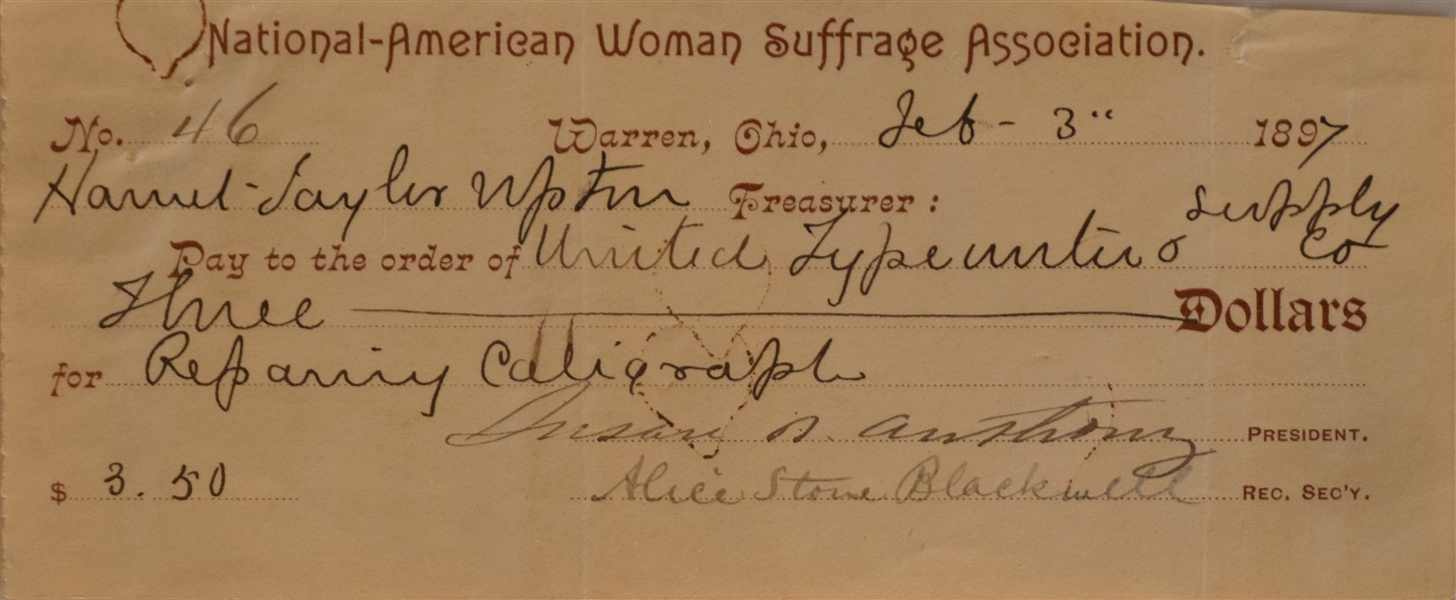 National-American Woman Suffrage Association.
No. 46 Warren, Ohio, Feb - 3" 1897
Harriet Taylor Upton Treasurer :
Pay to the order of United Typewriter & Supply Co
Three Dollars
for Repairing Caligraph
Susan B. Anthony PRESIDENT.
$ 3.50 Alice Stone Blackwell REC. SEC'Y.